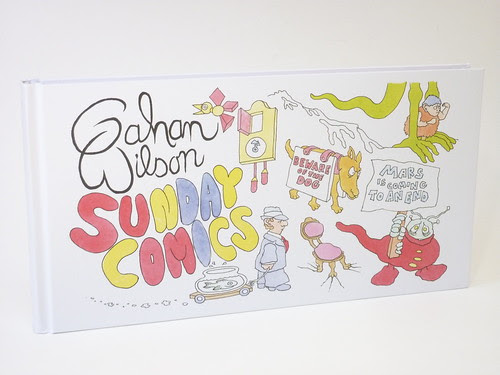 Gahan
Wilson
SUNDAY
COMICS
BEWARE
OF THE
DOG
MARS
IS COMING
TO AN END